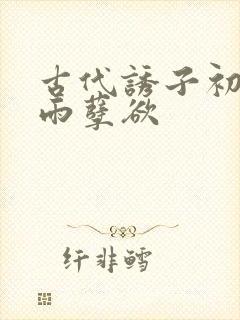 古代誘子初
雨孽欲
纤非鳕